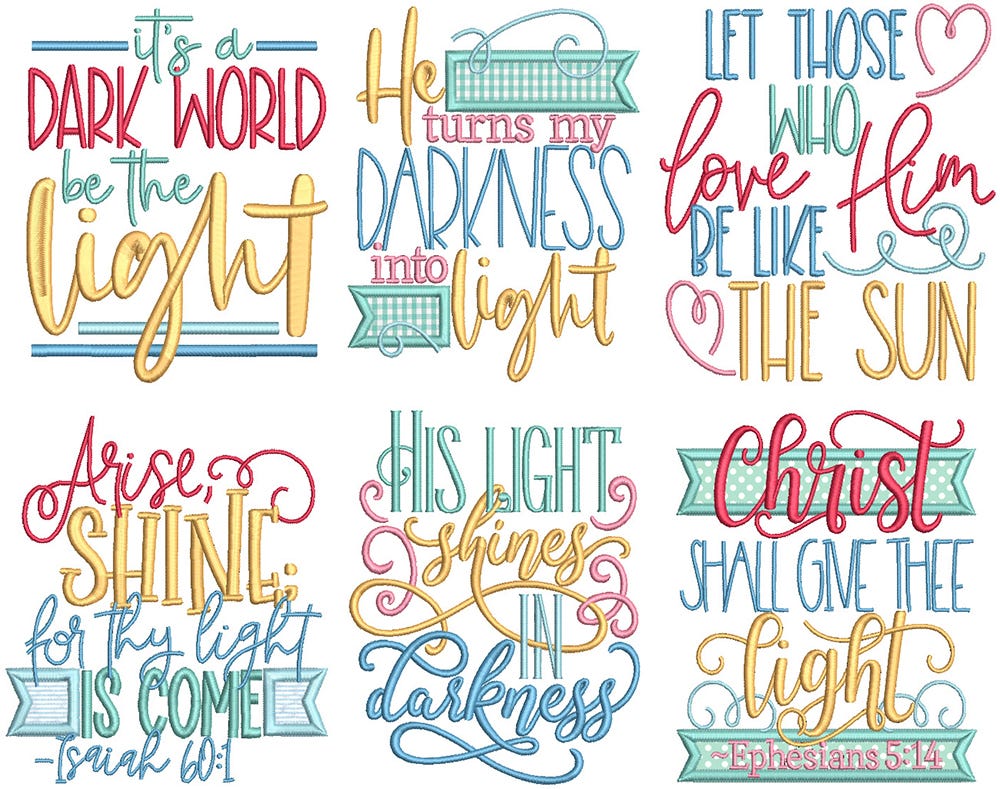 it's a
DARK WORLD
be the
light
He
turns my
DARKNESS
into light
LET THOSE
WHO
love Him
BE LIKE
THE SUN
Arise,
SHINE;
for thy light
IS COME
~Isaiah 60:1
HIS LIGHT
shines
IN
darkness
Christ
SHALL GIVE THEE
light
~Ephesians 5:14